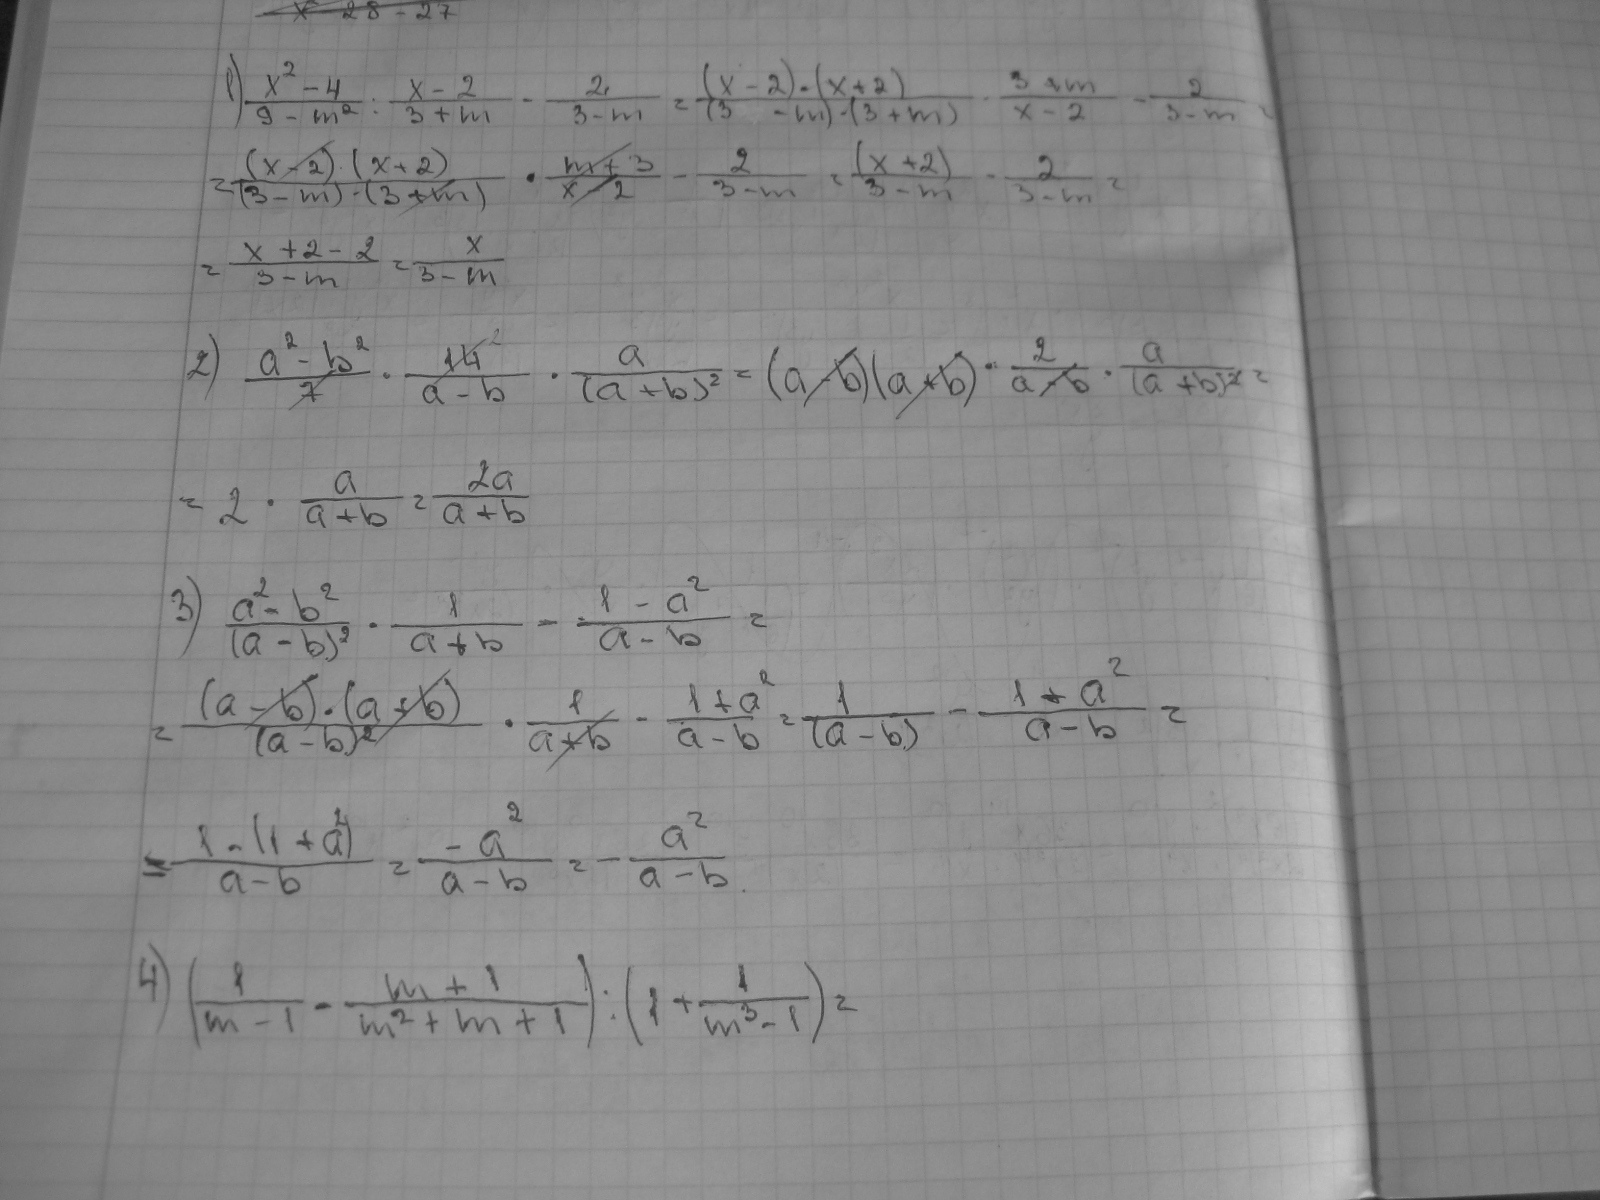 x 28 - 27
1) (x² - 4)/(9 - m²) : (x - 2)/(3 + m) - 2/(3 - m) = ((x - 2)·(x + 2))/((3 - m)·(3 + m)) · (3 + m)/(x - 2) - 2/(3 - m) =
= ((x - 2)·(x + 2))/((3 - m)·(3 + m)) · (m + 3)/(x - 2) - 2/(3 - m) = (x + 2)/(3 - m) - 2/(3 - m) =
= (x + 2 - 2)/(3 - m) = x/(3 - m)
2) (a² - b²)/7 · 14²/(a - b) · a/(a + b)² = (a - b)(a + b) · 2/(a - b) · a/(a + b)² =
= 2 · a/(a + b) = 2a/(a + b)
3) (a² - b²)/(a - b)² · 1/(a + b) - (1 - a²)/(a - b) =
= ((a - b)·(a + b))/(a - b)² · 1/(a + b) - (1 + a²)/(a - b) = 1/(a - b) - (1 + a²)/(a - b) =
= (1 - (1 + a²))/(a - b) = (- a²)/(a - b) = - a²/(a - b).
4) (1/(m - 1) - (m + 1)/(m² + m + 1)) : (1 + 1/(m³ - 1)) =